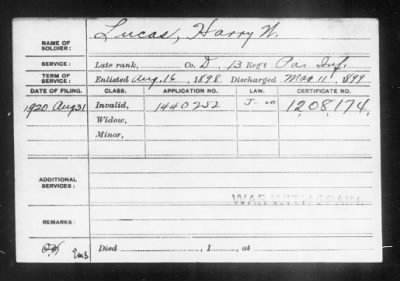 NAME OF SOLDIER: Lucas, Harry W.
SERVICE: Late rank, Co. D, 13 Reg't Pa. Inf.
TERM OF SERVICE: Enlisted Aug. 16, 1898. Discharged Mar. 11, 1899
DATE OF FILING. CLASS. APPLICATION NO. LAW. CERTIFICATE NO.
1920 Aug 31 Invalid, 1440252 J-20 1,208,174.
Widow,
Minor,
ADDITIONAL SERVICES:
WAR WITH SPAIN.
REMARKS:
Died , 1 , at